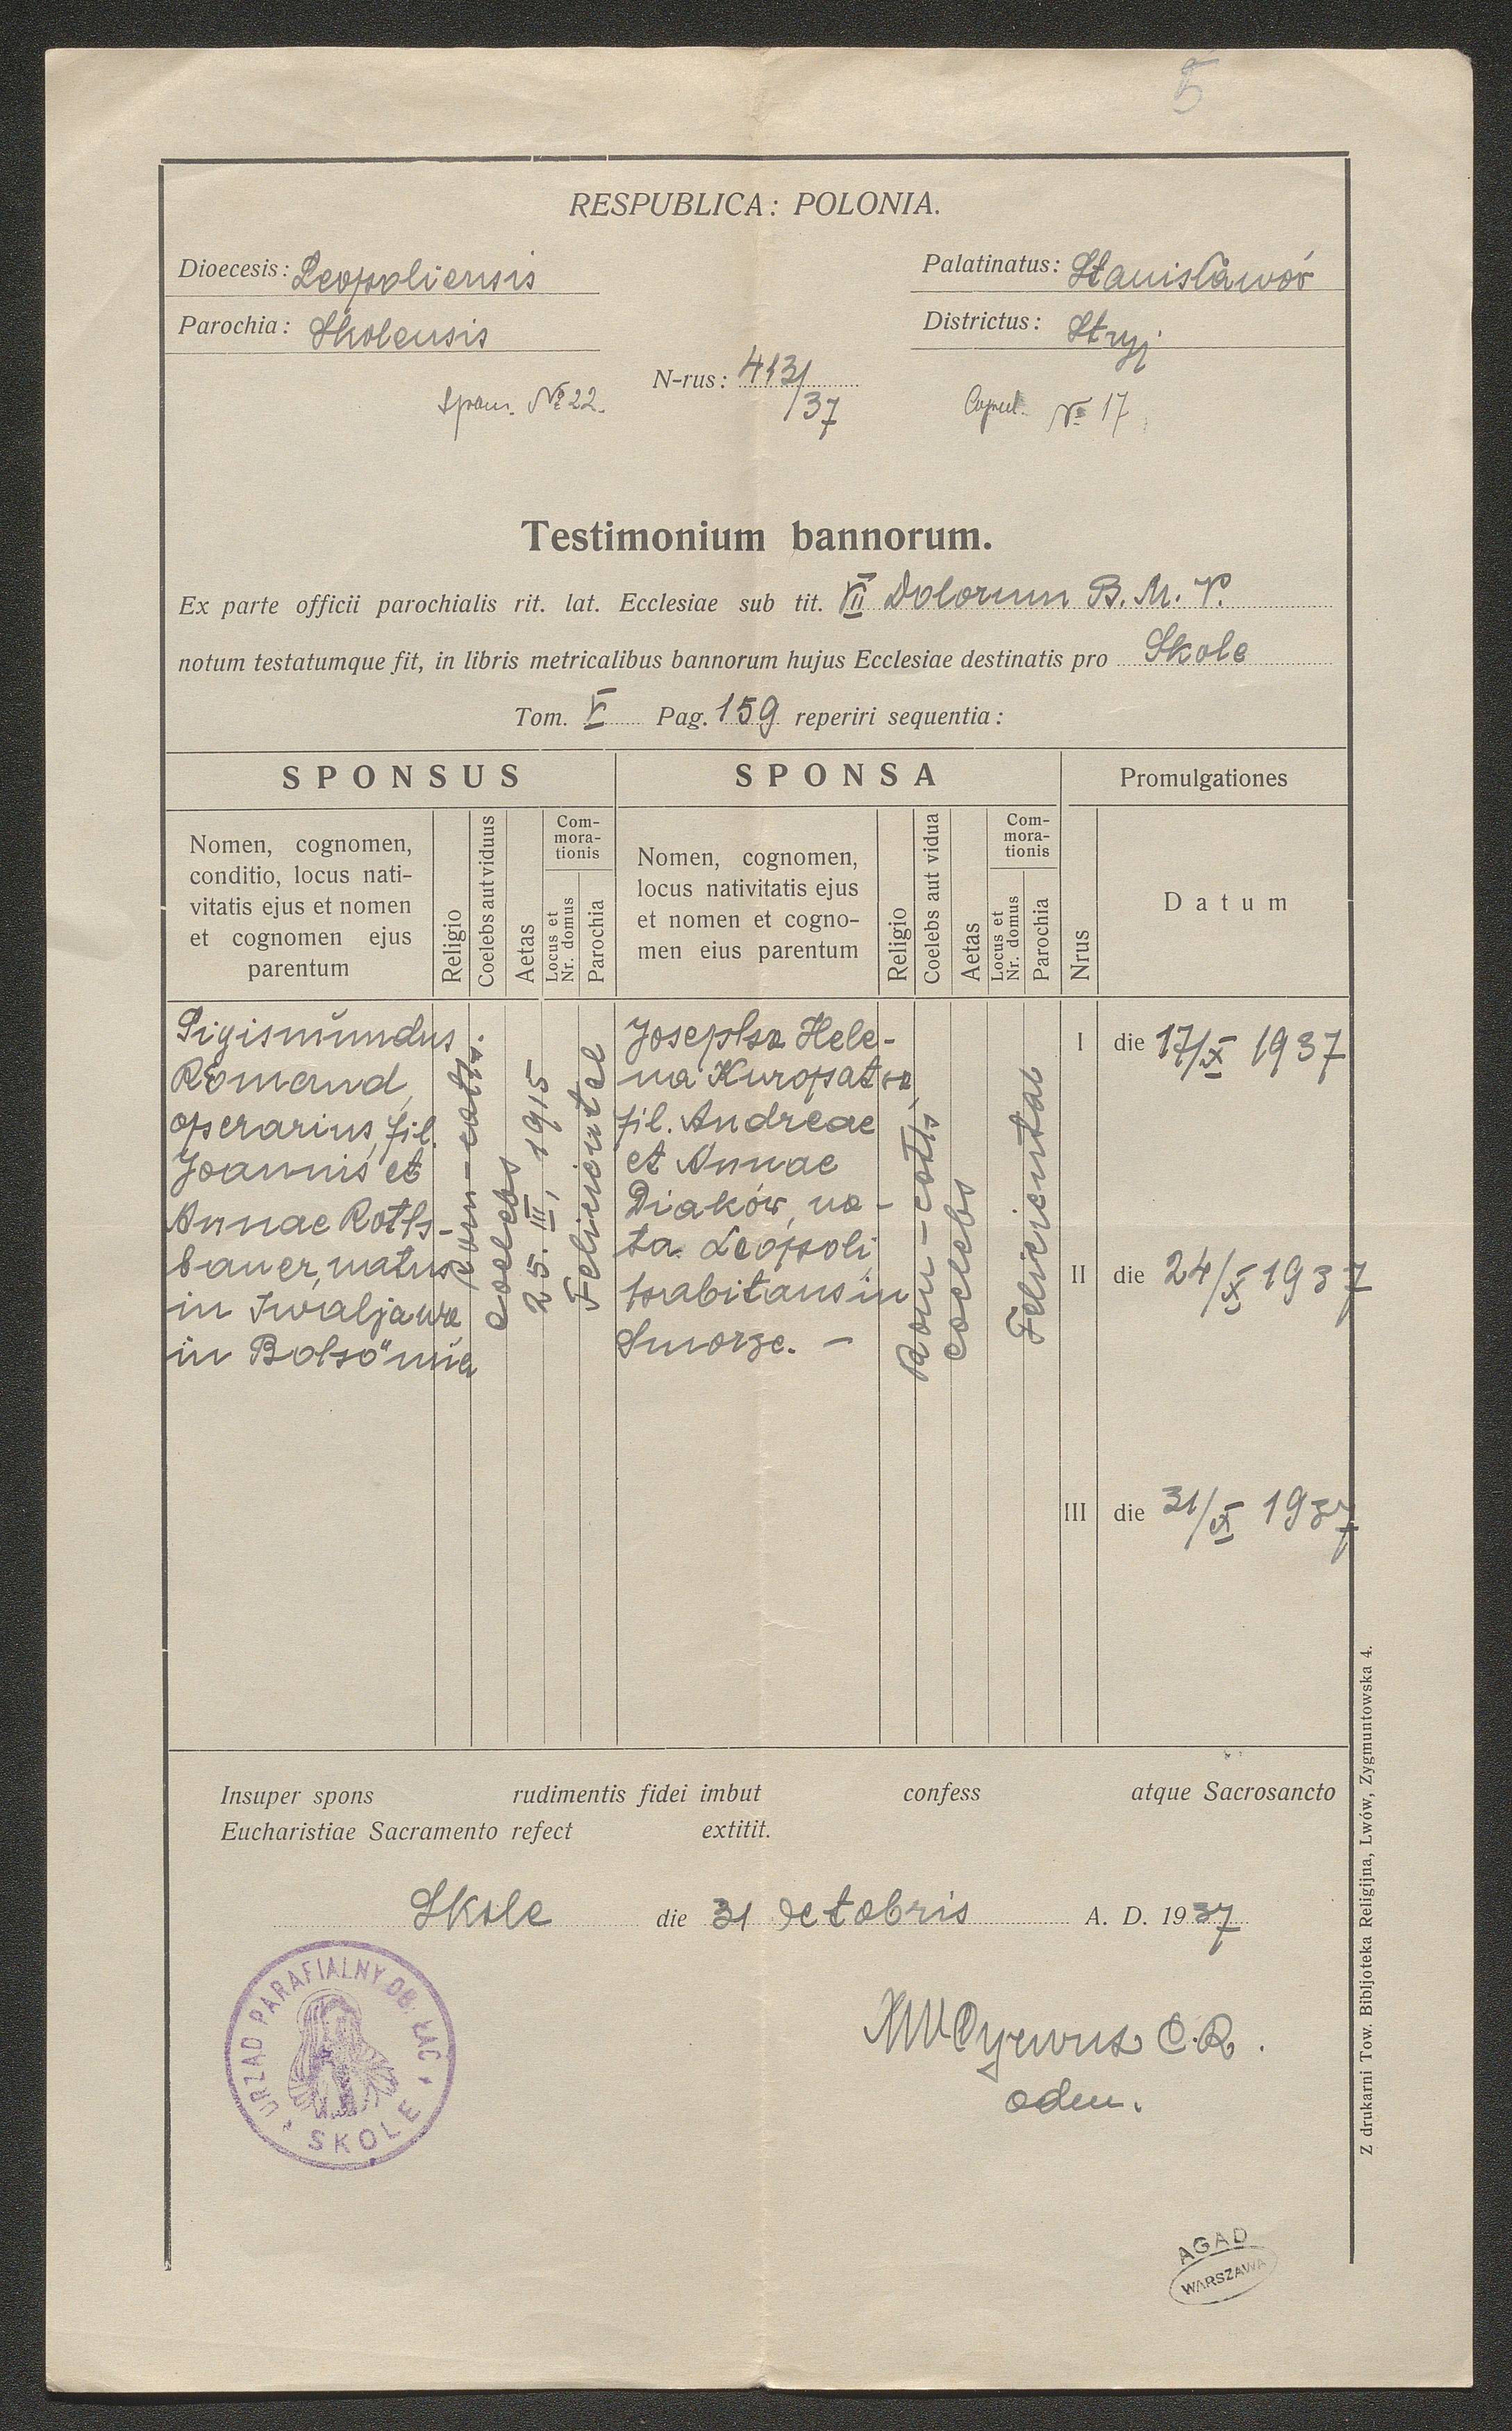 5
RESPUBLICA: POLONIA.
Dioecesis: Leopoliensis
Palatinatus: Stanisławów
Parochia: Skolensis
Districtus: Stryj
N-rus: 413/37
Spons. № 22.
Copul. № 17
Testimonium bannorum.
Ex parte officii parochialis rit. lat. Ecclesiae sub tit. VII Dolorum B. M. V.
notum testatumque fit, in libris metricalibus bannorum hujus Ecclesiae destinatis pro Skole
Tom. V Pag. 159 reperiri sequentia:
SPONSUS
SPONSA
Promulgationes
Nomen, cognomen,
conditio, locus nati-
vitatis ejus et nomen
et cognomen ejus
parentum
Religio
Coelebs aut viduus
Aetas
Com-
mora-
tionis
Locus et
Nr. domus
Parochia
Nomen, cognomen,
locus nativitatis ejus
et nomen et cogno-
men eius parentum
Religio
Coelebs aut vidua
Aetas
Com-
mora-
tionis
Locus et
Nr. domus
Parochia
Nrus
Datum
Sigismundus
Romand,
operarius, fil.
Joannis et
Annae Roths-
bauer, natus
in Iwaljawa
in
Rom-cath.
coelebs
25. III, 1915
Felicientel
Josepha Hele-
na Kuropatwa,
fil. Andreae
et Annae
Diaków, na-
ta Leopoli
habitans in
Smorze. —
Rom-cath
coelebs
Felicientel
I die 17/X 1937
II die 24/X 1937
III die 31/X 1937
Insuper spons rudimentis fidei imbut confess atque Sacrosancto
Eucharistiae Sacramento refect extitit.
Skole die 31 octobris A. D. 1937
C.R.
adm.
URZĄD PARAFIALNY OB. ŁAC.
SKOLE
Z drukarni Tow. Bibljoteka Religijna, Lwów, Zygmuntowska 4.
AGAD
WARSZAWA